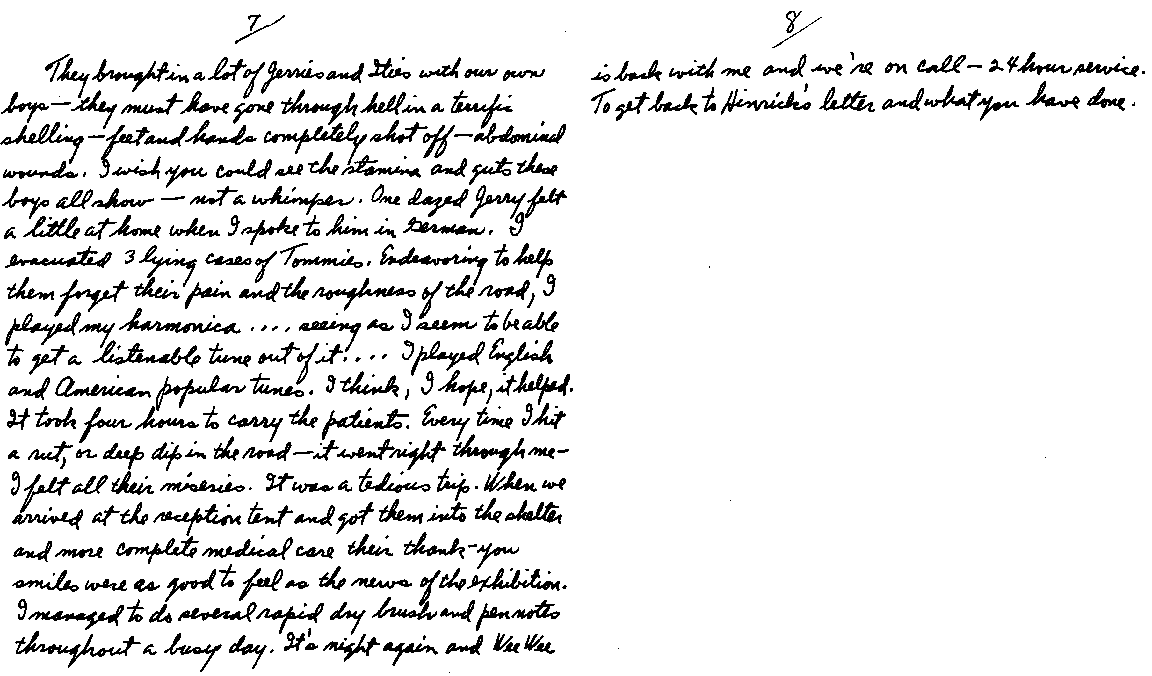 7
They brought in a lot of Jerries and Ities with our own
boys — they must have gone through hell in a terrific
shelling — feet and hands completely shot off — abdominal
wounds. I wish you could see the stamina and guts these
boys all show — not a whimper. One dazed Jerry felt
a little at home when I spoke to him in German. I
evacuated 3 lying cases of Tommies. Endeavoring to help
them forget their pain and the roughness of the road, I
played my harmonica .... seeing as I seem to be able
to get a listenable tune out of it .... I played English
and American popular tunes. I think, I hope, it helped.
It took four hours to carry the patients. Every time I hit
a rut, or deep dip in the road — it went right through me —
I felt all their miseries. It was a tedious trip. When we
arrived at the reception tent and got them into the shelter
and more complete medical care their thank-you
smiles were as good to feel as the news of the exhibition.
I managed to do several rapid dry brush and pen notes
throughout a busy day. It's night again and Wee Wee
8
is back with me and we're on call — 24 hour service.
To get back to Hinrick's letter and what you have done.